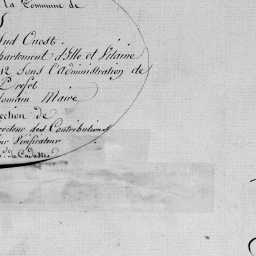 la Commune de
Sud Ouest.
partement d'Ille et Vilaine
12 sous l'administration de
Préfet
Maire
ection de
recteur des Contributions
Vérificateur